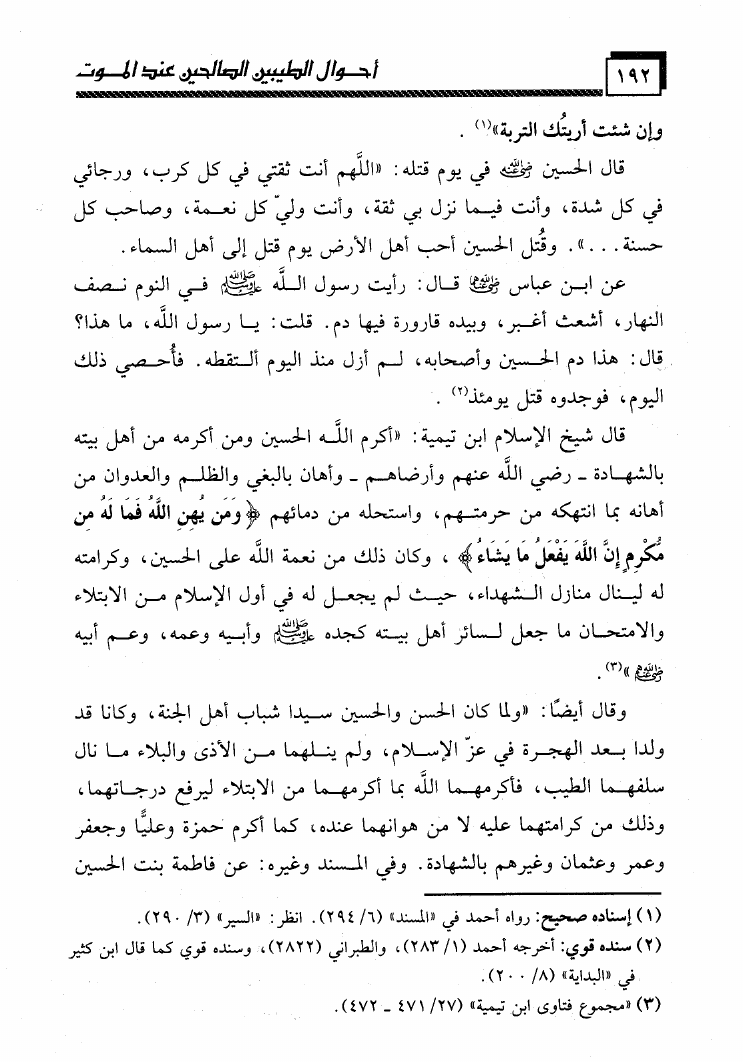 ١٩٢
أحـوال الطيبين الصالحين عند المـوت
وإن شئت أريتُك التربة»(١) .
قال الحسين رضي الله عنه في يوم قتله: «اللَّهم أنت ثقتي في كل كرب، ورجائي
في كل شدة، وأنت فيـما نزل بي ثقة، وأنت وليّ كل نعـمة، وصاحب كل
حسنة . . .». وقُتل الحسين أحب أهل الأرض يوم قتل إلى أهل السماء.
عن ابـن عباس رضي الله عنهما قـال: رأيت رسول اللـه ﷺ فـي النوم نـصف
النهار، أشعث أغـبر، وبيده قارورة فيها دم. قلت: يـا رسول اللَّه، ما هذا؟
قال: هذا دم الحـسين وأصحابه، لـم أزل منذ اليوم ألـتقطه. فأُحـصي ذلك
اليوم، فوجدوه قتل يومئذ(٢) .
قال شيخ الإسلام ابن تيمية: «أكرم اللَّـه الحسين ومن أكرمه من أهل بيته
بالشهـادة ـ رضي اللَّه عنهم وأرضاهـم ـ وأهان بالبغي والظلـم والعدوان من
أهانه بما انتهكه من حرمتـهم، واستحله من دمائهم ﴿وَمَن يُهِنِ اللَّهُ فَمَا لَهُ مِن
مُّكْرِمٍ إِنَّ اللَّهَ يَفْعَلُ مَا يَشَاءُ﴾ ، وكان ذلك من نعمة اللَّه على الحسين، وكرامته
له لينـال منازل الـشهداء، حيـث لم يجعـل له في أول الإسلام مـن الابتلاء
والامتحـان ما جعل لـسائر أهل بيـته كجده ﷺ وأبـيه وعمه، وعـم أبيه
رضي الله عنهم»(٣).
وقال أيضًا: «ولما كان الحسن والحسين سـيدا شباب أهل الجنة، وكانا قد
ولدا بـعد الهجـرة في عزّ الإسـلام، ولم ينـلهما مـن الأذى والبلاء مـا نال
سلفهـما الطيب، فأكرمهـما اللَّه بما أكرمهـما من الابتلاء ليرفع درجـاتهما،
وذلك من كرامتهما عليه لا من هوانهما عنده، كما أكرم حمزة وعليًّا وجعفر
وعمر وعثمان وغيرهم بالشهادة. وفي المـسند وغيره: عن فاطمة بنت الحسين
(١) إسناده صحيح: رواه أحمد في «المسند» (٦/ ٢٩٤). انظر: «السير» (٣/ ٢٩٠).
(٢) سنده قوي: أخرجه أحمد (١/ ٢٨٣)، والطبراني (٢٨٢٢)، وسنده قوي كما قال ابن كثير
في «البداية» (٨/ ٢٠٠).
(٣) «مجموع فتاوى ابن تيمية» (٢٧/ ٤٧١ ـ ٤٧٢).